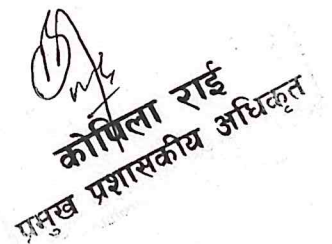 कोपिला राई
प्रमुख प्रशासकीय अधिकृत